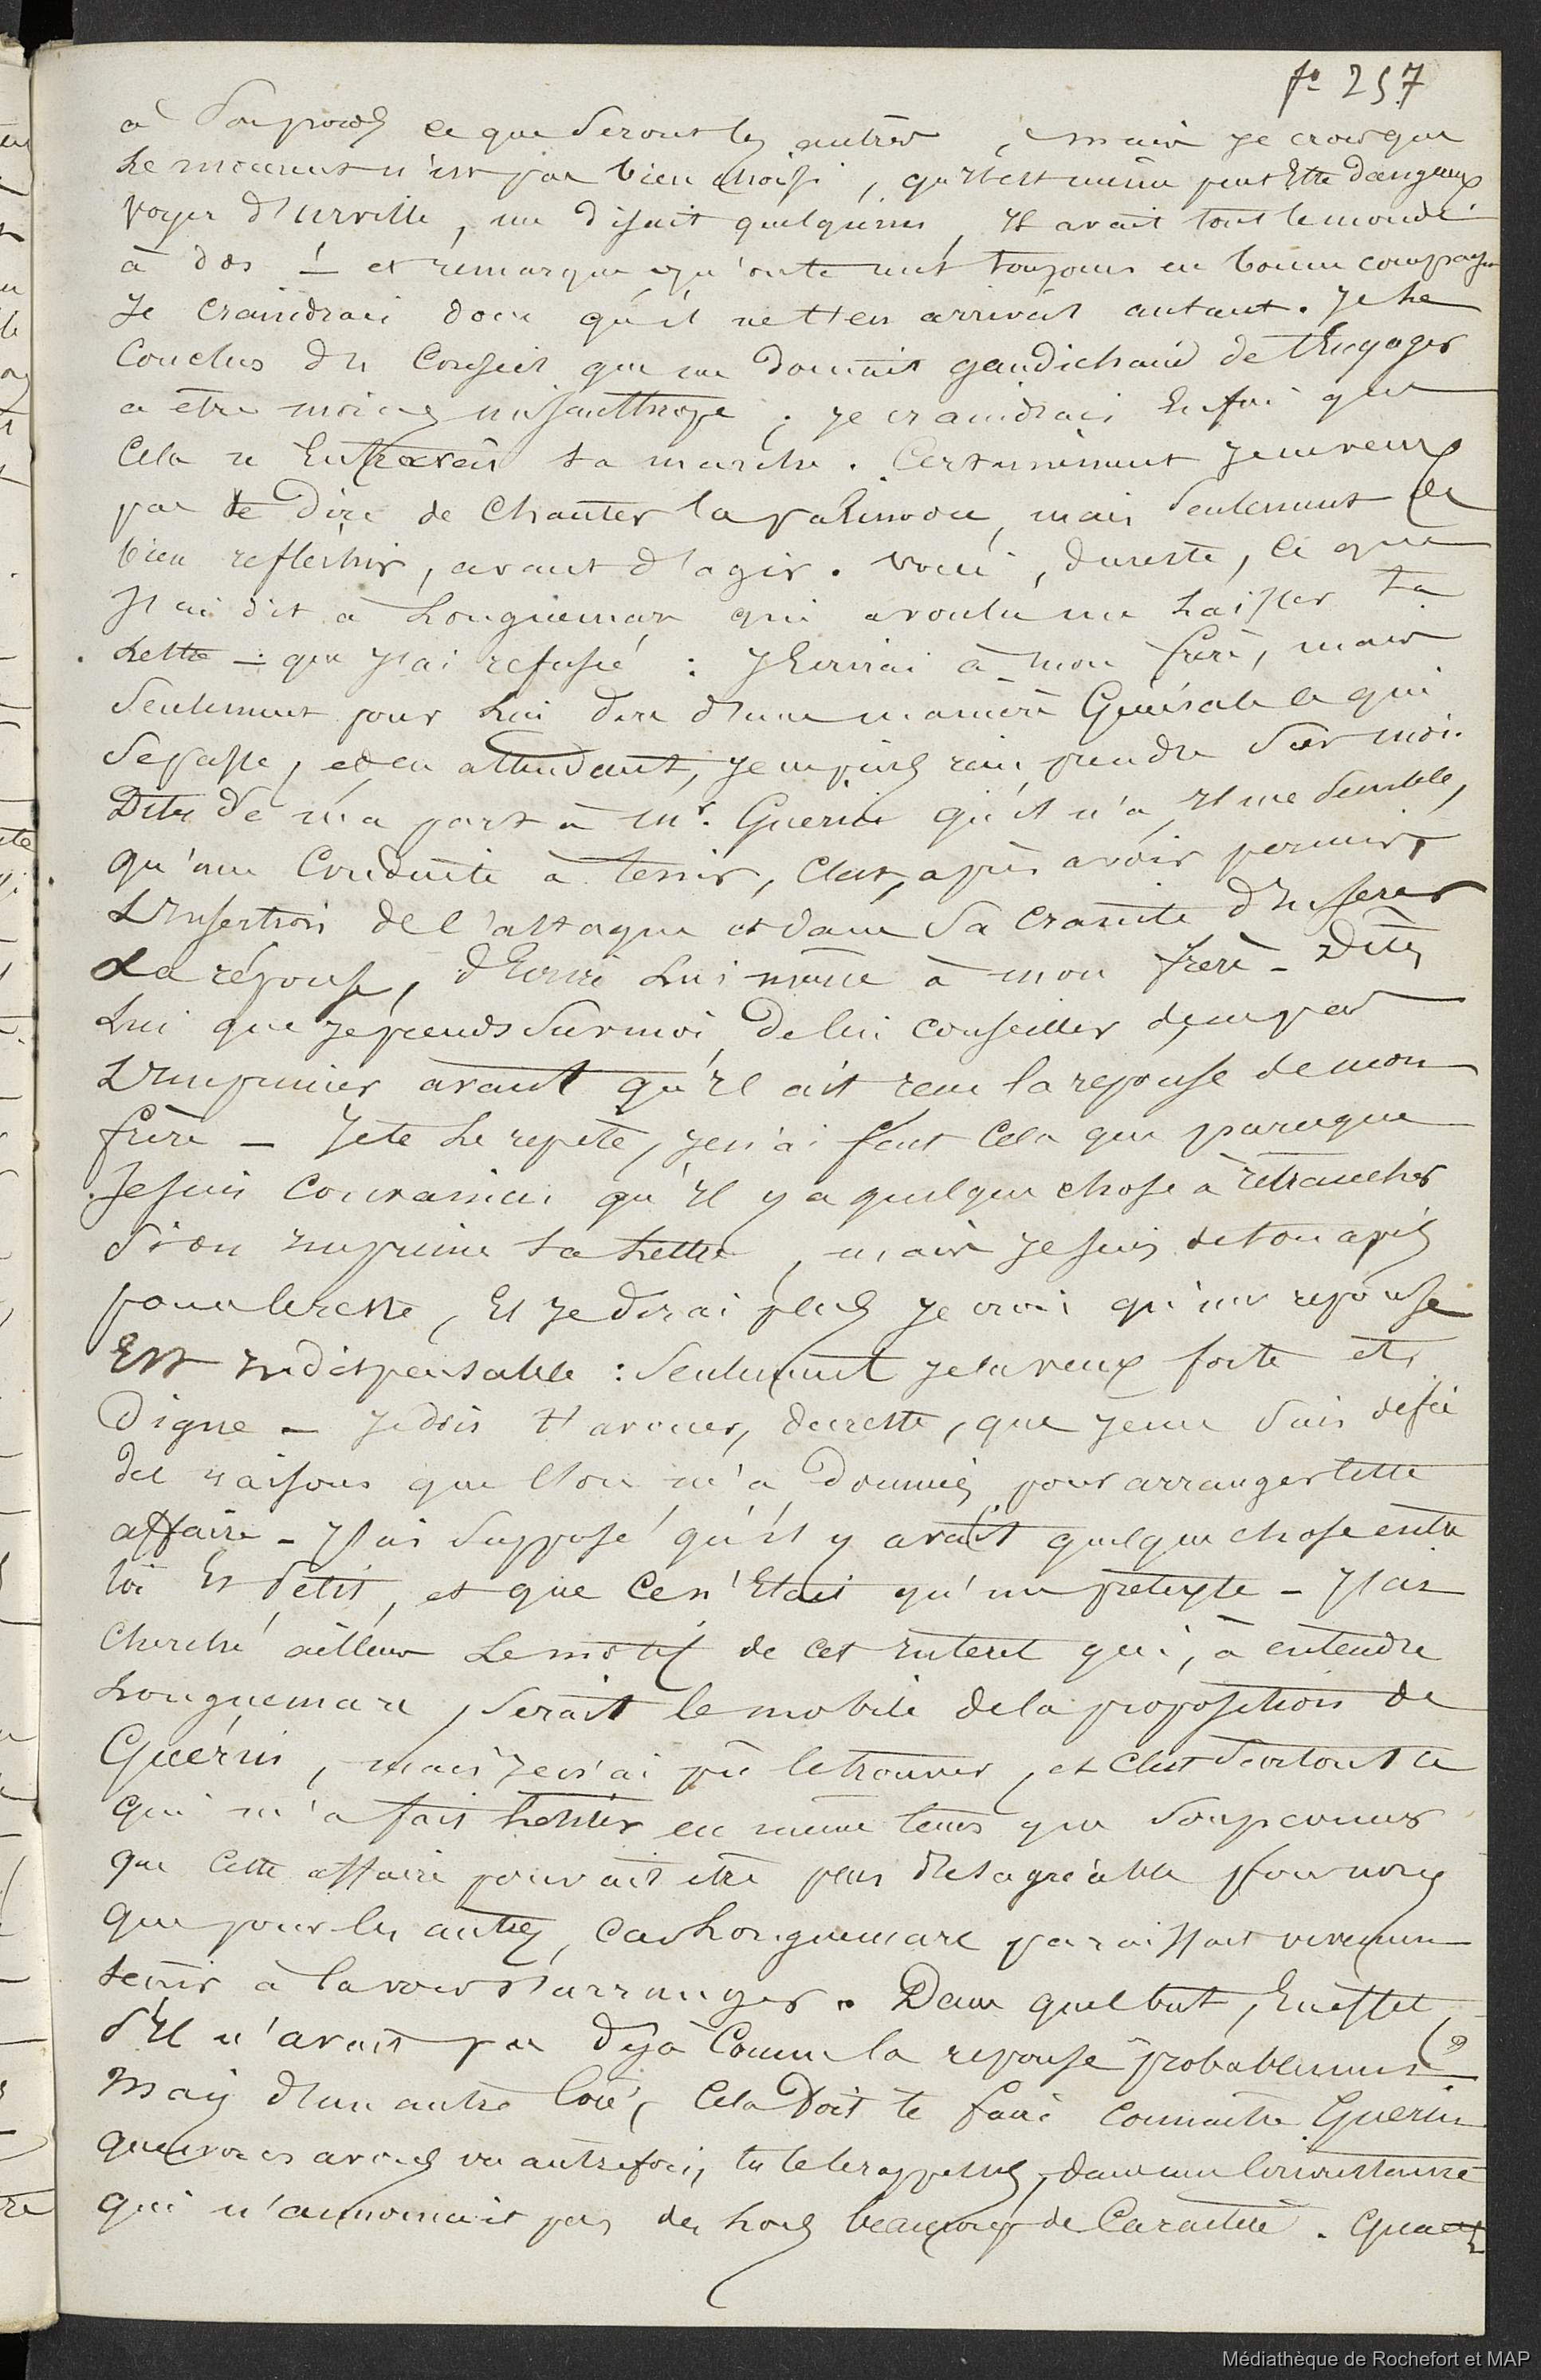 fo 257
à Son poids ce que Seront les autres, mais je crois que
Le moment n'est pas bien choisi, qu'Il est même peut Etre dangereux
voyez d'urville, me disait quelqu'un, Il avait tout le monde
à dos ! — et remarque qu'on te met toujours en bonne compagnie
Je craindrai donc qu'il ne t'en arrivât autant. Je Le
Conclus du Conseil que me donnait gaudichaud de t'Engager
a être moins misanthrope ; je craindrai Enfin que
Cela n'Entravât ta marche. Certainement je ne veux
pas te Dire de Chanter la palinodie, mais Seulement de
bien reflechir, avant d'agir. voici, du reste, ce que
J'ai dit à Longuemar qui a voulu me Laisser ta
Lettre — que j'ai refusé : J'Ecrirai à mon frère, mais
Seulement pour Lui dire d'une manière Générale ce qui
Se passe, et en attendant, je ne puis rien prendre Sur moi.
Dites de ma part à Mr. Guérin qu'il n'a, Il me Semble,
qu'une Conduite à tenir, C'est, après avoir permis
L'Insertion de l'attaque et dans Sa crainte d'Inserer
La réponse, d'Ecrire Lui même à mon frère — Dites
Lui que je prends Sur moi De lui conseiller de ne pas
L'Imprimer avant qu'Il ait reçu la reponse de mon
frère — Je te Le repète, je n'ai fait Cela que parceque
Je Suis Convaincu qu'Il y a quelque chose à retrancher
Si on Imprime ta Lettre, mais je Suis de ton avis
pour le reste, Et je dirai plus je crois qu'une reponse
Est Indispensable : Seulement je la veux forte et
Digne — Je dois t'avouer, du reste, que je me Suis défié
des raisons que l'on m'a Données pour arranger cette
affaire — J'ai Supposé qu'il y avait quelque chose entre
toi Et Petit, et que Ce n'Etait qu'un pretexte — J'ai
Cherché ailleurs Le motif de cet Interet qui, à entendre
Longuemare, Serait le mobile de la proposition de
Guérin, mais je n'ai pû le trouver, et C'est Surtout ce
qui m'a fait hesiter en même tems que Soupçonner
que Cette affaire pouvait être plus Désagréable pour nous
que pour les autres, Car Longuemare paraissait vivement
tenir à la voir S'arranger. Dans quel but, En effet,
S'Il n'avait pas déjà Connu la reponse probablement ?
Mais d'un autre Coté, Cela Doit te faire Connaitre Guérin
que nous avons vu autrefois, tu te le rappelles, dans une Circonstance
qui n'annonçait pas beaucoup de Caractère. Quant
Médiathèque de Rochefort et MAP